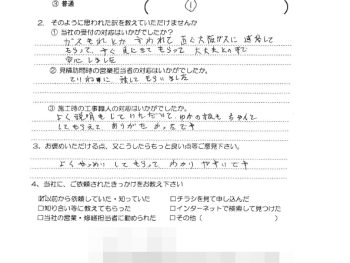 ③ 普通
( ① )
2. そのように思われた訳を教えていただけませんか
① 当社の受付の対応はいかがでしたか？
ガスもれとか言われて 直ぐ大阪ガスに連絡して
もらって、すぐ見に来てもらって 大丈夫との事で
安心しました
② 見積訪問時の営業担当者の対応はいかがでしたか。
ていねいに 話してもらいました
③ 施工時の工事職人の対応はいかがでしたか。
よく説明をしていただいて、
してもらえて ありがたかったです
3. お褒めいただける点、又こうしたらもっと良い点等ご意見下さい。
よくせつめいしてもらって わかりやすいです
4. 当社に、ご依頼されたきっかけをお教え下さい
☑以前から依頼していた・知っていた □チラシを見て申し込んだ
□知り合い等に教えてもらった □インターネットで検索して見つけた
□当社の営業・修繕担当者に勧められた □その他（